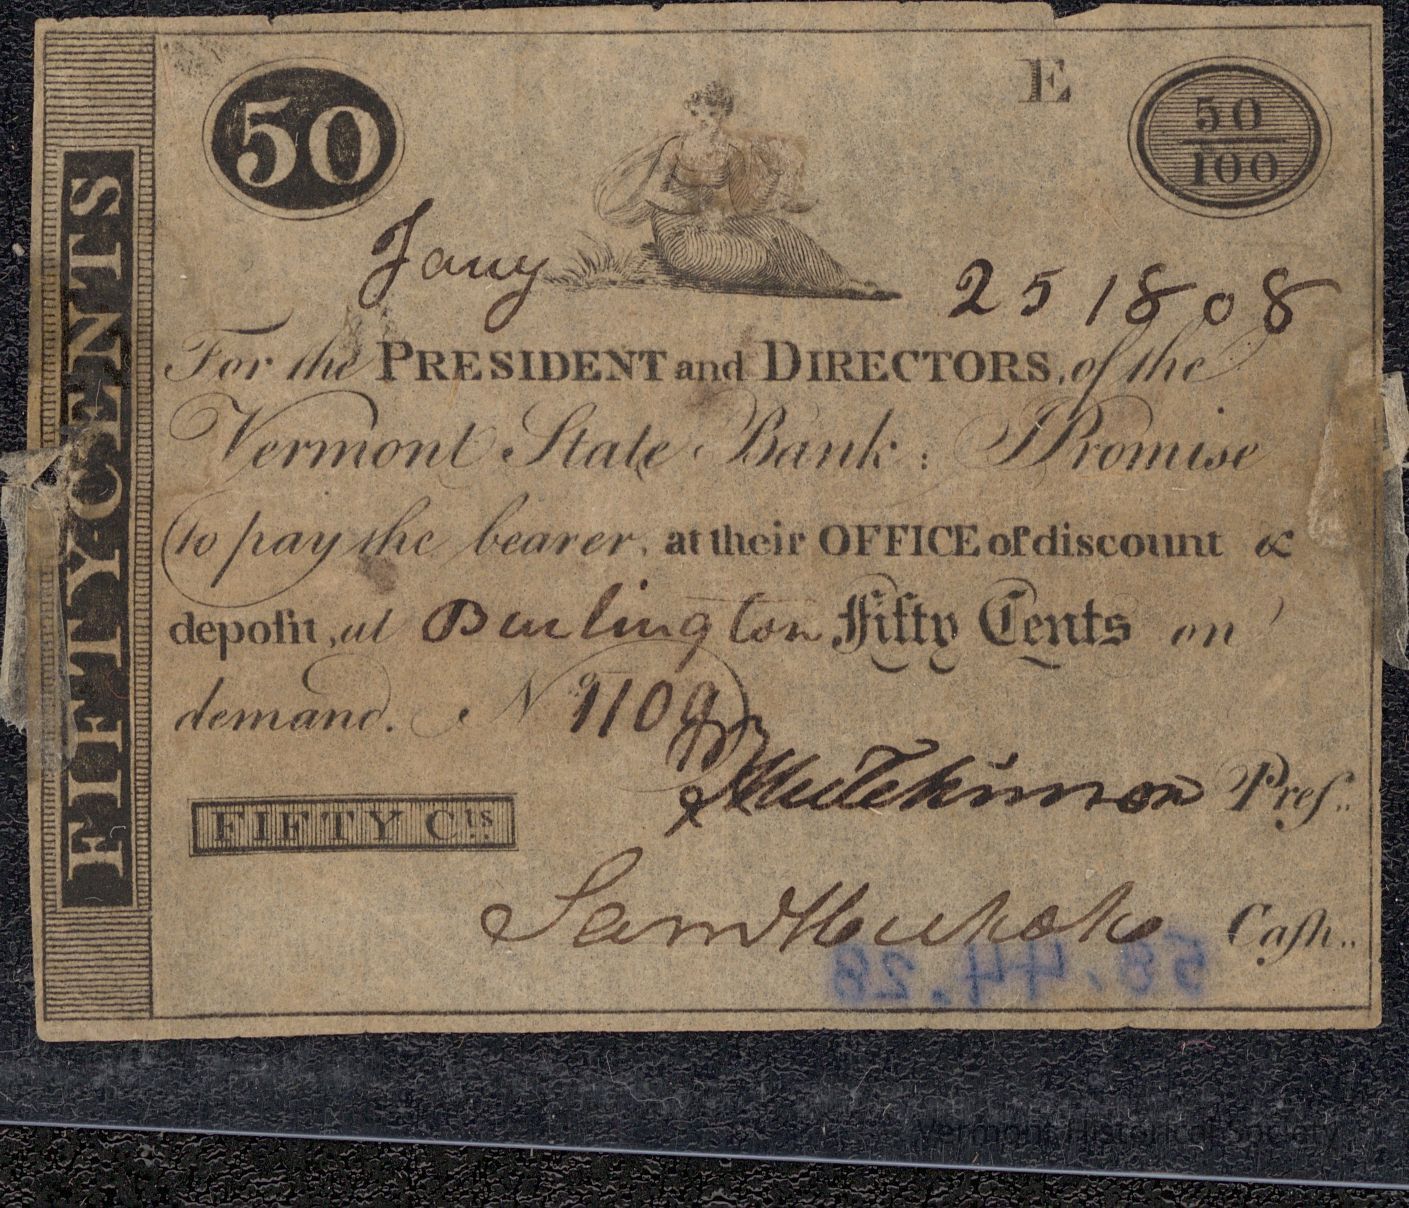 50
E
50
100
FIFTY CENTS
Jany 25 1808
For the PRESIDENT and DIRECTORS, of the
Vermont State Bank: I Promise
to pay the bearer, at their OFFICE of discount &
deposit, at Burlington Fifty Cents on
demand. No 1109
Hutchinson Pres..
FIFTY Cts
Cash..
58.44.28
Vermont Historical Society